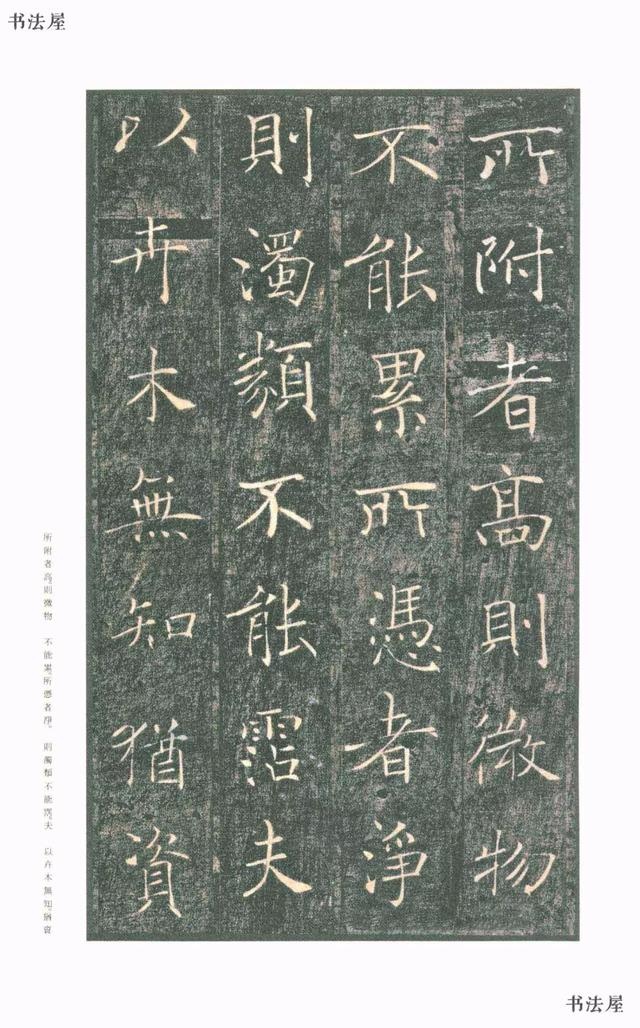 书法屋
所附者高則微物
不能累所憑者淨
則濁類不能霑夫
以卉木無知猶資
所附者高。則微物　不能累。所憑者淨。　則濁類不能霑。夫　以卉木無知。猶資
书法屋